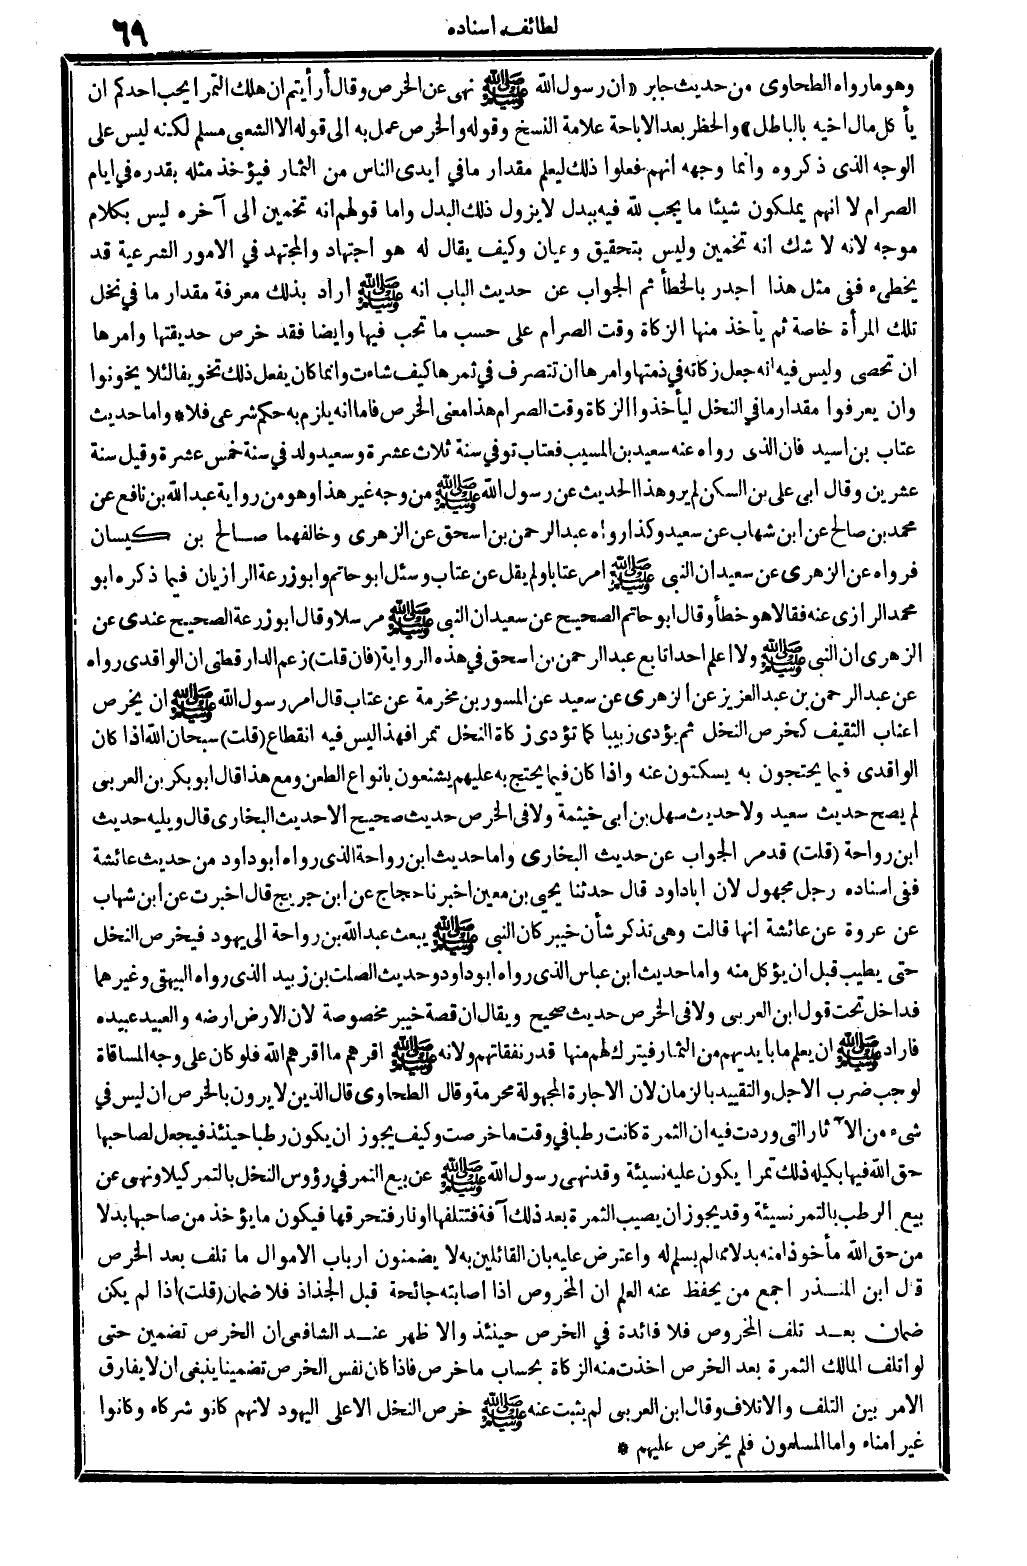 لطائف اسناده
٦٩
وهو مارواه الطحاوى من حديث جابر «ان رسول الله ﷺ نهى عن الخرص وقال أرأيتم ان هلك التمر ايحب احدكم ان
يأكل مال اخيه بالباطل» والحظر بعد الاباحة علامة النسخ وقوله والخرص عمل به الى قوله الا الشعبي مسلم لكنه ليس على
الوجه الذى ذكروه وانما وجهه انهم فعلوا ذلك ليعلم مقدار ما في ايدى الناس من الثمار فيؤخذ مثله بقدره في ايام
الصرام لا انهم يملكون شيئا ما يجب لله فيه ببدل لا يزول ذلك البدل واما قولهم انه تخمين الى آخره ليس بكلام
موجه لانه لا شك انه تخمين وليس بتحقيق وعيان وكيف يقال له هو اجتهاد والمجتهد في الامور الشرعية قد
يخطىء ففى مثل هذا اجدر بالخطأ ثم الجواب عن حديث الباب انه ﷺ اراد بذلك معرفة مقدار ما في نخل
تلك المرأة خاصة ثم يأخذ منها الزكاة وقت الصرام على حسب ما تجب فيها وايضا فقد خرص حديقتها وامرها
ان تحصى وليس فيه انه جعل زكاته في ذمتها وامرها ان تتصرف في ثمرها كيف شاءت وانما كان يفعل ذلك تخويفا لئلا يخونوا
وان يعرفوا مقدار ما في النخل ليأخذوا الزكاة وقت الصرام هذا معنى الخرص فاما انه يلزم به حكم شرعى فلا * واما حديث
عتاب بن اسيد فان الذى رواه عنه سعيد بن المسيب فعتاب توفي سنة ثلاث عشرة وسعيد ولد في سنة خمس عشرة وقيل سنة
عشرين وقال ابى على بن السكن لم يرو هذا الحديث عن رسول الله ﷺ من وجه غير هذا وهو من رواية عبد الله بن نافع عن
محمد بن صالح عن ابن شهاب عن سعيد وكذا رواه عبد الرحمن بن اسحق عن الزهرى وخالفهما صالح بن كيسان
فرواه عن الزهرى عن سعيد ان النبى ﷺ امر عتابا ولم يقل عن عتاب وسئل ابو حاتم وابو زرعة الرازيان فيما ذكره ابو
محمد الرازى عنه فقالا هو خطأ وقال ابو حاتم الصحيح عن سعيد ان النبى ﷺ مرسلا وقال ابو زرعة الصحيح عندى عن
الزهرى ان النبى ﷺ ولا اعلم احدا تابع عبد الرحمن بن اسحق في هذه الرواية (فان قلت) زعم الدارقطنى ان الواقدى رواه
عن عبد الرحمن بن عبد العزيز عن الزهرى عن سعيد عن المسور بن مخرمة عن عتاب قال امر رسول الله ﷺ ان يخرص
اعناب الثقيف كخرص النخل ثم يؤدى زبيبا كما تؤدى زكاة النخل تمرا فهذا ليس فيه انقطاع (قلت) سبحان الله اذا كان
الواقدى فيما يحتجون به يسكتون عنه واذا كان فيما يحتج به عليهم يشنعون بانواع الطعن ومع هذا قال ابو بكر بن العربى
لم يصح حديث سعيد ولا حديث سهل بن ابى خيثمة ولا في الخرص حديث صحيح الا حديث البخارى قال ويليه حديث
ابن رواحة (قلت) قد مر الجواب عن حديث البخارى واما حديث ابن رواحة الذى رواه ابو داود من حديث عائشة
ففى اسناده رجل مجهول لان ابا داود قال حدثنا يحيى بن معين اخبرنا حجاج عن ابن جريج قال اخبرت عن ابن شهاب
عن عروة عن عائشة انها قالت وهى تذكر شأن خيبر كان النبى ﷺ يبعث عبد الله بن رواحة الى يهود فيخرص النخل
حتى يطيب قبل ان يؤكل منه واما حديث ابن عباس الذى رواه ابو داود وحديث الصلت بن زبيد الذى رواه البيهقى وغيرهما
فداخل تحت قول ابن العربى ولا في الخرص حديث صحيح ويقال ان قصة خيبر مخصوصة لان الارض ارضه والعبيد عبيده
فاراد ﷺ ان يعلم ما بايديهم من الثمار فيترك لهم منها قدر نفقاتهم ولانه ﷺ اقرهم ما اقرهم الله فلو كان على وجه المساقاة
لوجب ضرب الاجل والتقييد بالزمان لان الاجارة المجهولة محرمة وقال الطحاوى قال الذين لا يرون بالخرص ان ليس في
شىء من الآثار التى وردت فيه ان الثمرة كانت رطبا في وقت ما خرصت وكيف يجوز ان يكون رطبا حينئذ فيجعل لصاحبها
حق الله فيها بكيله ذلك تمرا يكون عليه نسيئة وقد نهى رسول الله ﷺ عن بيع التمر في رؤوس النخل بالتمر كيلا ونهى عن
بيع الرطب بالتمر نسيئة وقد يجوز ان يصيب الثمرة بعد ذلك آفة فتتلفها او نار فتحرقها فيكون ما يؤخذ من صاحبها بدلا
من حق الله مأخوذا منه بدلا مما لم يسلم له واعترض عليه بان القائلين به لا يضمنون ارباب الاموال ما تلف بعد الخرص
قال ابن المنذر اجمع من يحفظ عنه العلم ان المخروص اذا اصابته جائحة قبل الجذاذ فلا ضمان (قلت) اذا لم يكن
ضمان بعد تلف المخروص فلا فائدة في الخرص حينئذ والا ظهر عند الشافعى ان الخرص تضمين حتى
لو اتلف المالك الثمرة بعد الخرص اخذت منه الزكاة بحساب ما خرص فاذا كان نفس الخرص تضمينا ينبغى ان لا يفارق
الامر بين التلف والاتلاف وقال ابن العربى لم يثبت عنه ﷺ خرص النخل الا على اليهود لانهم كانو شركاه وكانوا
غير امناء واما المسلمون فلم يخرص عليهم *